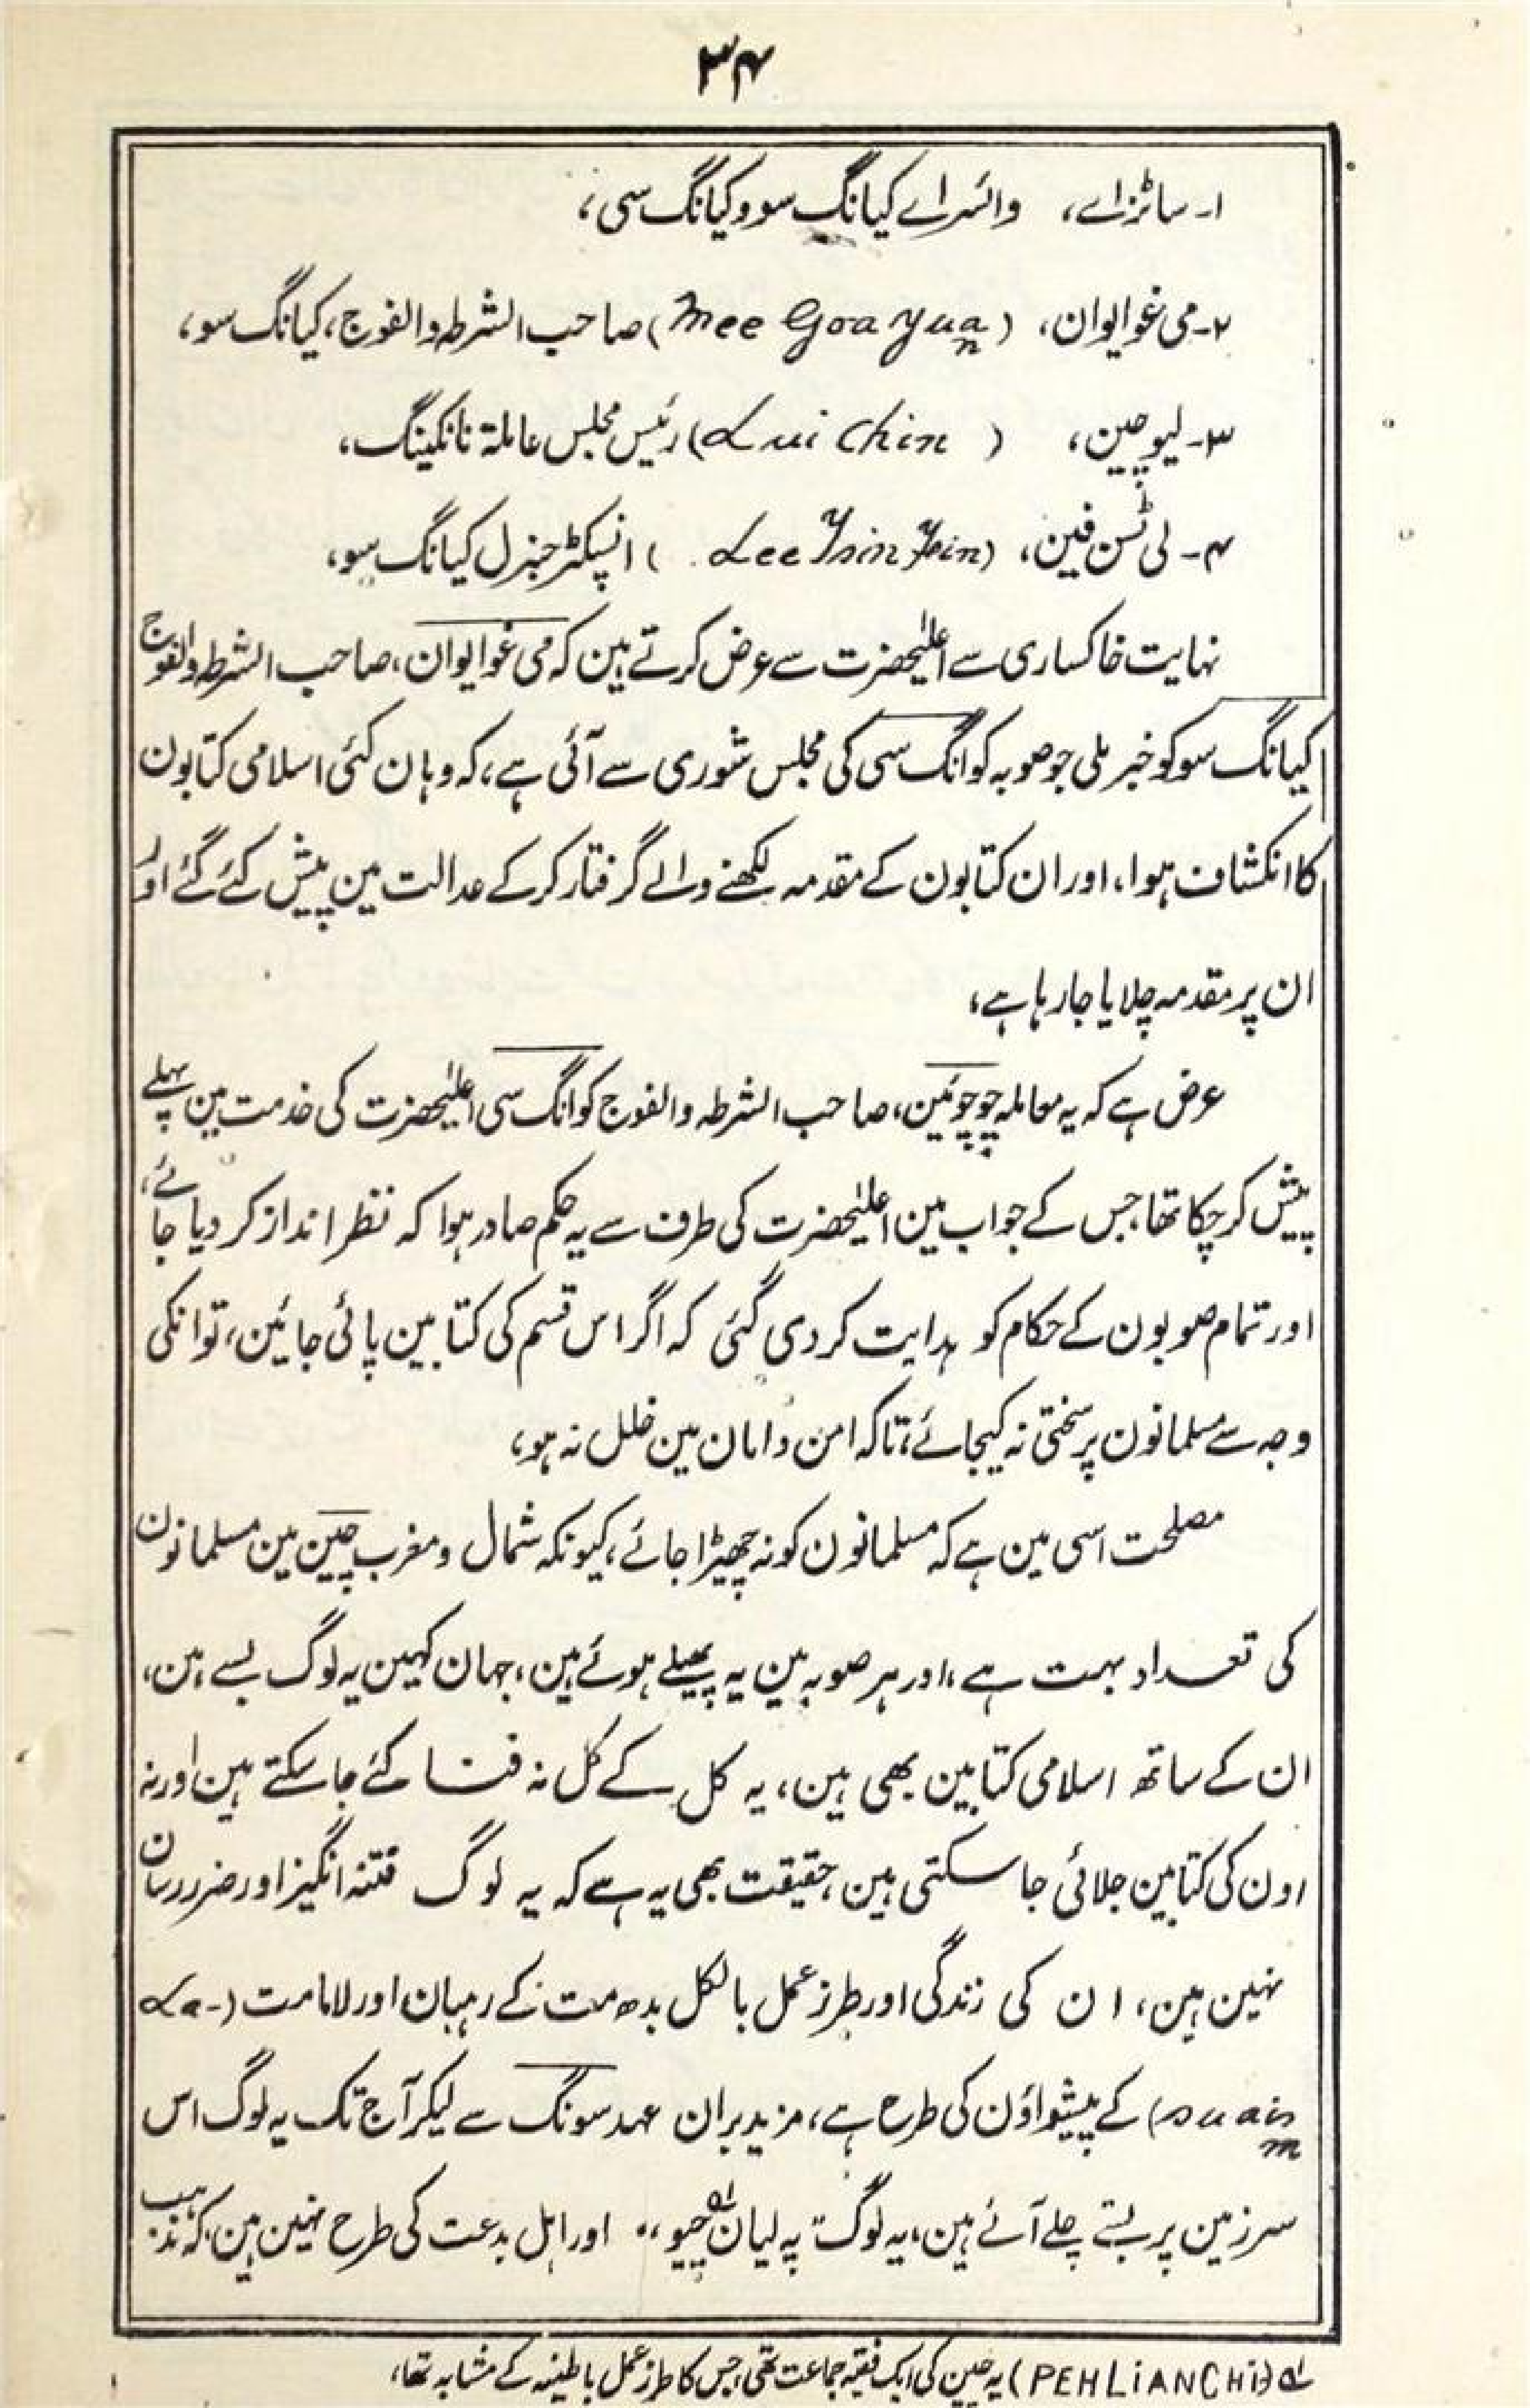 ۳۴
۱۔ ساٹزاے، وائسراے کیانگ سو و کیانگ سی،
۲۔ می غوایوان، (Mee Goa Yuan) صاحب الشرطہ والفوج، کیانگ سو،
۳۔ لیوچین، (Lui Chin) رئیس مجلس عاملۃ نانکینگ،
۴۔ لی ٹسن فین، (Lee Tsin Fein) انسپکٹر جنرل کیانگ سو،
نہایت خاکساری سے اعلیٰحضرت سے عرض کرتے ہین کہ می غوایوان، صاحب الشرطہ والفوج
کیانگ سو کو خبر ملی جو صوبہ کوانگ سی کی مجلس شوری سے آئی ہے، کہ وہان کئی اسلامی کتابون
کا انکشاف ہوا، اور ان کتابون کے مقدمہ لکھنے والے گرفتار کرکے عدالت مین پیش کئے گئے اور
ان پر مقدمہ چلایا جا رہا ہے،
عرض ہے کہ یہ معاملہ چوچوئین، صاحب الشرطہ والفوج کوانگ سی اعلیٰحضرت کی خدمت مین پہلے
پیش کر چکا تھا، جس کے جواب مین اعلیٰحضرت کی طرف سے یہ حکم صادر ہوا کہ نظر انداز کر دیا جائے،
اور تمام صوبون کے حکام کو ہدایت کر دی گئی کہ اگر اس قسم کی کتابین پائی جائین، تو انکی
وجہ سے مسلمانون پر سختی نہ کیجائے، تاکہ امن و امان مین خلل نہ ہو،
مصلحت اسی مین ہے کہ مسلمانون کو نہ چھیڑا جائے، کیونکہ شمال و مغرب چین مین مسلمانون
کی تعداد بہت ہے، اور ہر صوبہ مین یہ پھیلے ہوئے ہین، جہان کہین یہ لوگ بسے ہین،
ان کے ساتھ اسلامی کتابین بھی ہین، یہ کل کے کل نہ فنا کئے جا سکتے ہین اور نہ
اون کی کتابین جلائی جا سکتی ہین، حقیقت بھی یہ ہے کہ یہ لوگ فتنہ انگیز اور ضرر رسان
نہین ہین، ان کی زندگی اور طرز عمل بالکل بدھ مت کے رہبان اور لاما مت (La-
suaism) کے پیشواؤن کی طرح ہے، مزید بران عہد سونگ سے لیکر آج تک یہ لوگ اس
سرزمین پر بستے چلے آئے ہین، یہ لوگ "پہ لیان چیو"۱ اور اہل بدعت کی طرح نہین ہین کہ مذہب
۱ (PEH LiAN CHi) یہ چین کی ایک خفیہ جماعت تھی، جس کا طرز عمل باطنیہ کے مشابہ تھا،